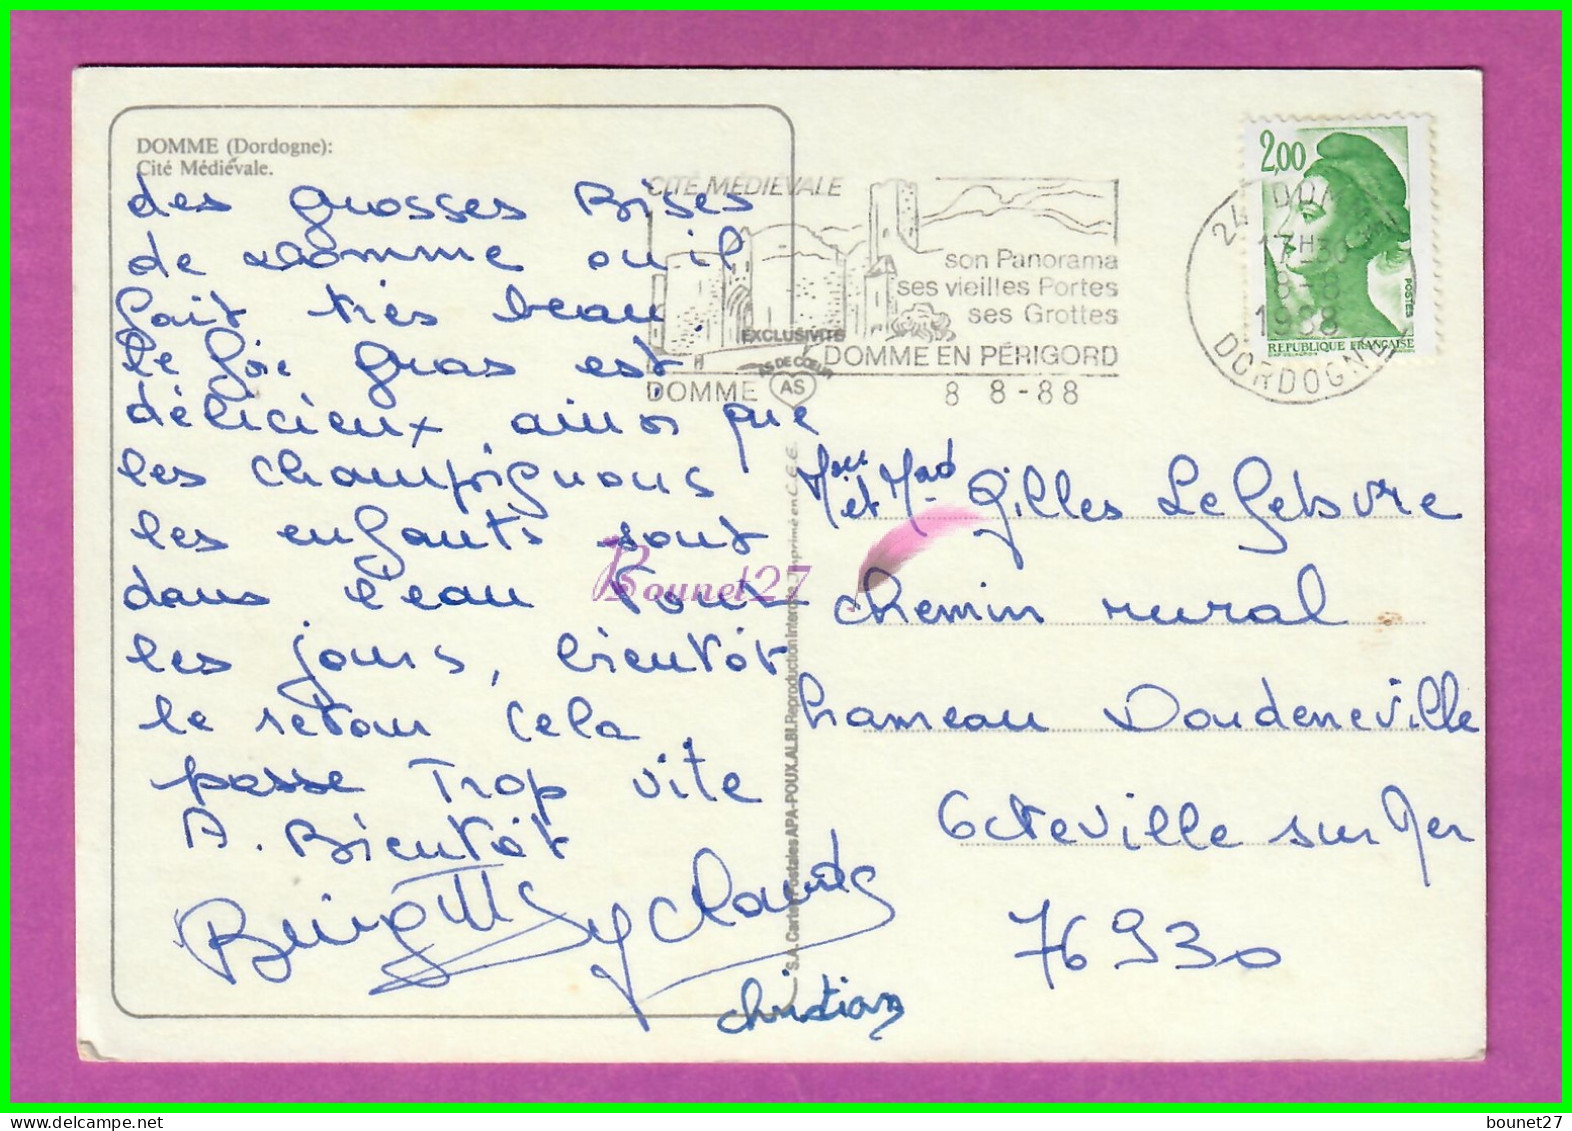 DOMME (Dordogne):
Cité Médiévale.
des grosses Bises
de Domme ou il
fait très beau.
le foie gras est
délicieux ainsi que
les champignons
les enfants sont
dans l'eau Tous
les jours, bientôt
le retour cela
passe Trop vite
A. Bientôt
Brigitte Claude
christian
CITÉ MÉDIÉVALE
son Panorama
ses vieilles Portes
ses Grottes
DOMME EN PÉRIGORD
DOMME
8 8-88
EXCLUSIVITÉ
AS DE COEUR
AS
2,00
POSTES
REPUBLIQUE FRANÇAISE
24 DOMME
17H30
8-8
1988
DORDOGNE
et Mad Gilles Lefebvre
chemin rural
hameau Doudeneville
Octeville sur Mer
76930
S.A. Cartes Postales APA-POUX. ALBI. Reproduction Interdite. Imprimé en C.E.E.
Bounet27
bounet27